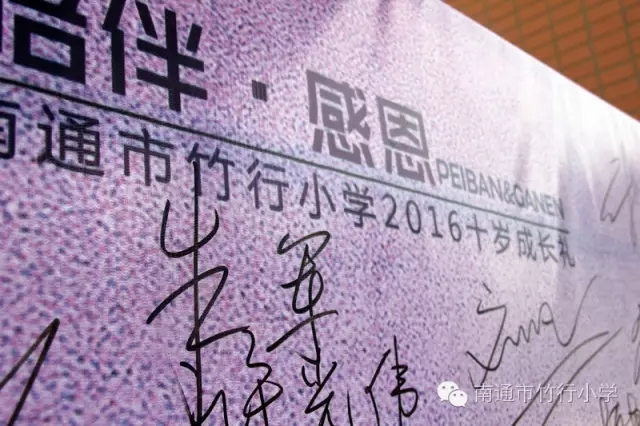 陪伴·感恩
PEIBAN&GANEN
南通市竹行小学2016十岁成长礼
朱军
许光伟
南通市竹行小学